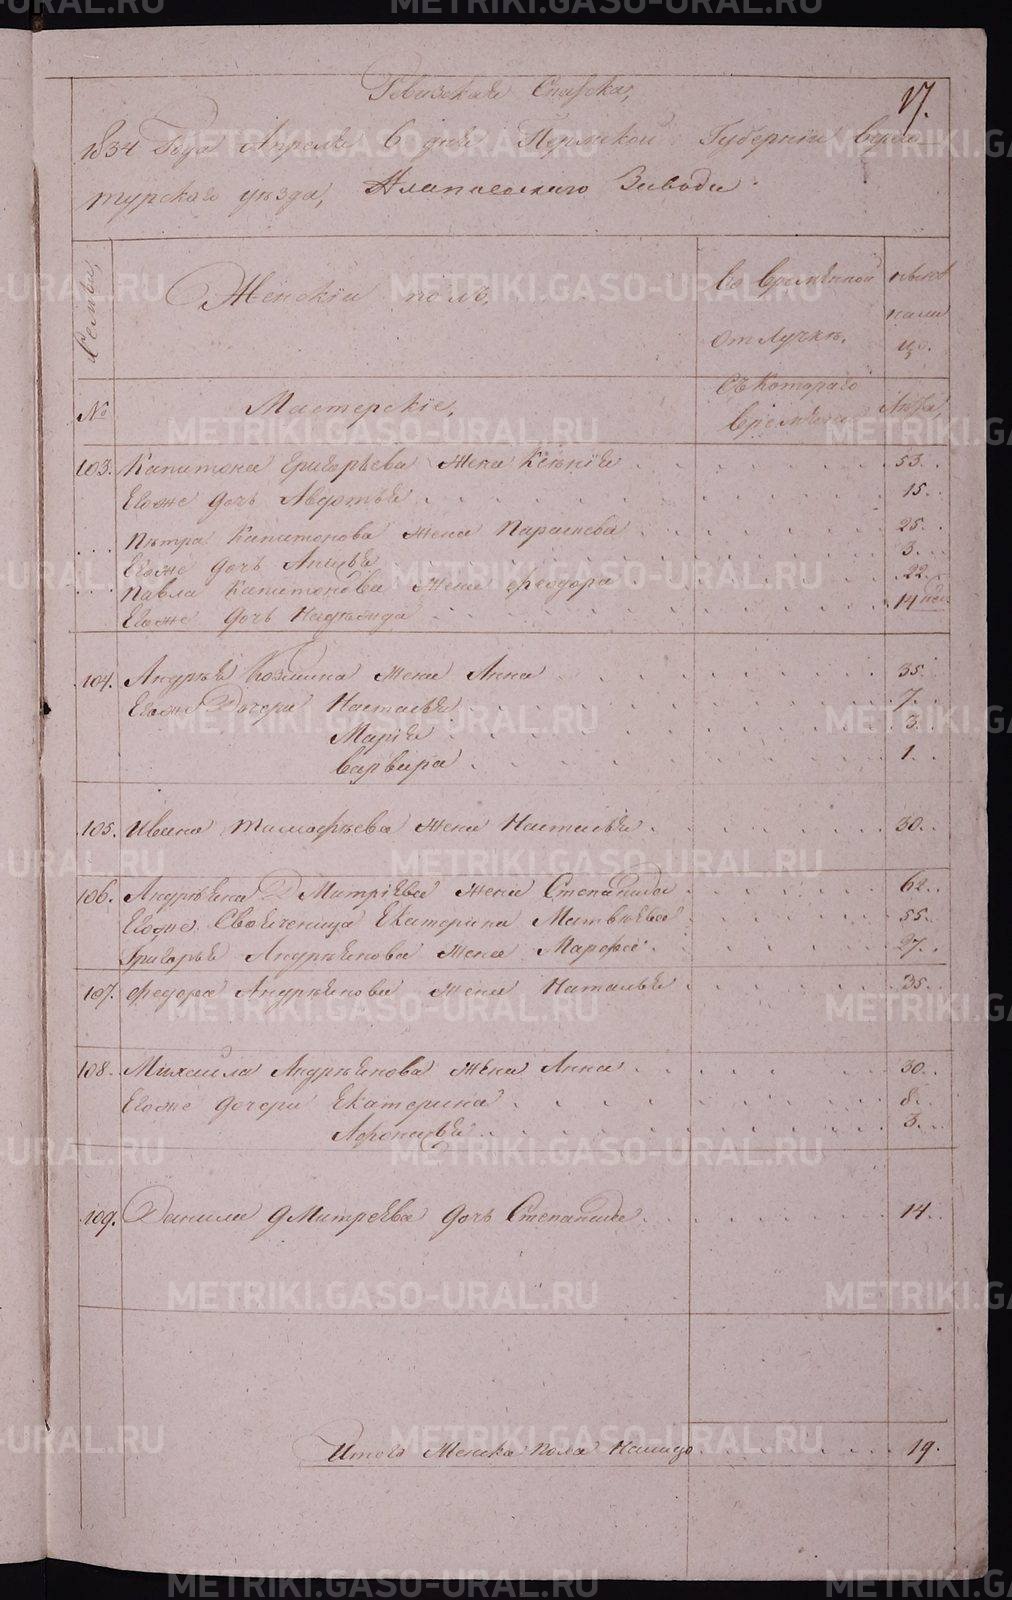 Ревизская Сказка,
17.
1834 Года Апреля 6 дня Пермской Губернiи Верхо
турского уезда, Алапаевского Завода
Семьи,
Женскiй полъ,
Во временной
отлучкѣ.
съ Котораго
времѣни
ныне
нали
цо.
№
Мастерскiе,
Лѣта,
103. Капитона григорьева жена Ксѣнiя 53.
Егоже дочь Авдотья 15.
Пѣтра Капитонова жена Парасковья 25.
Егоже дочь Анисья 3.
Павла Капитонова жена Феодора 22.
Егоже дочь Надѣжда 14 нед
104. Андрѣя Козмина жена Анна 35.
Егоже Дочери Настасья 7.
Марiя 3.
Варвара 1.
105. Ивана Тимофѣева жена Настасья 30.
106. Андрѣяна Дмитрiева жена Степанида 62.
Егоже Свояченица Екатерина Матвѣева 55.
Григорья Андрѣянова жена Марфа 27.
107. Федора Андрѣянова жена Наталья 35.
108. Михаила Андрѣянова жена Анна 30.
Егоже дочери Екатерина 8.
Афонасья 3.
109. Данила Дмитрева дочь Степанида 14.
Итого женска пола налицо 19.
METRIKI.GASO-URAL.RU